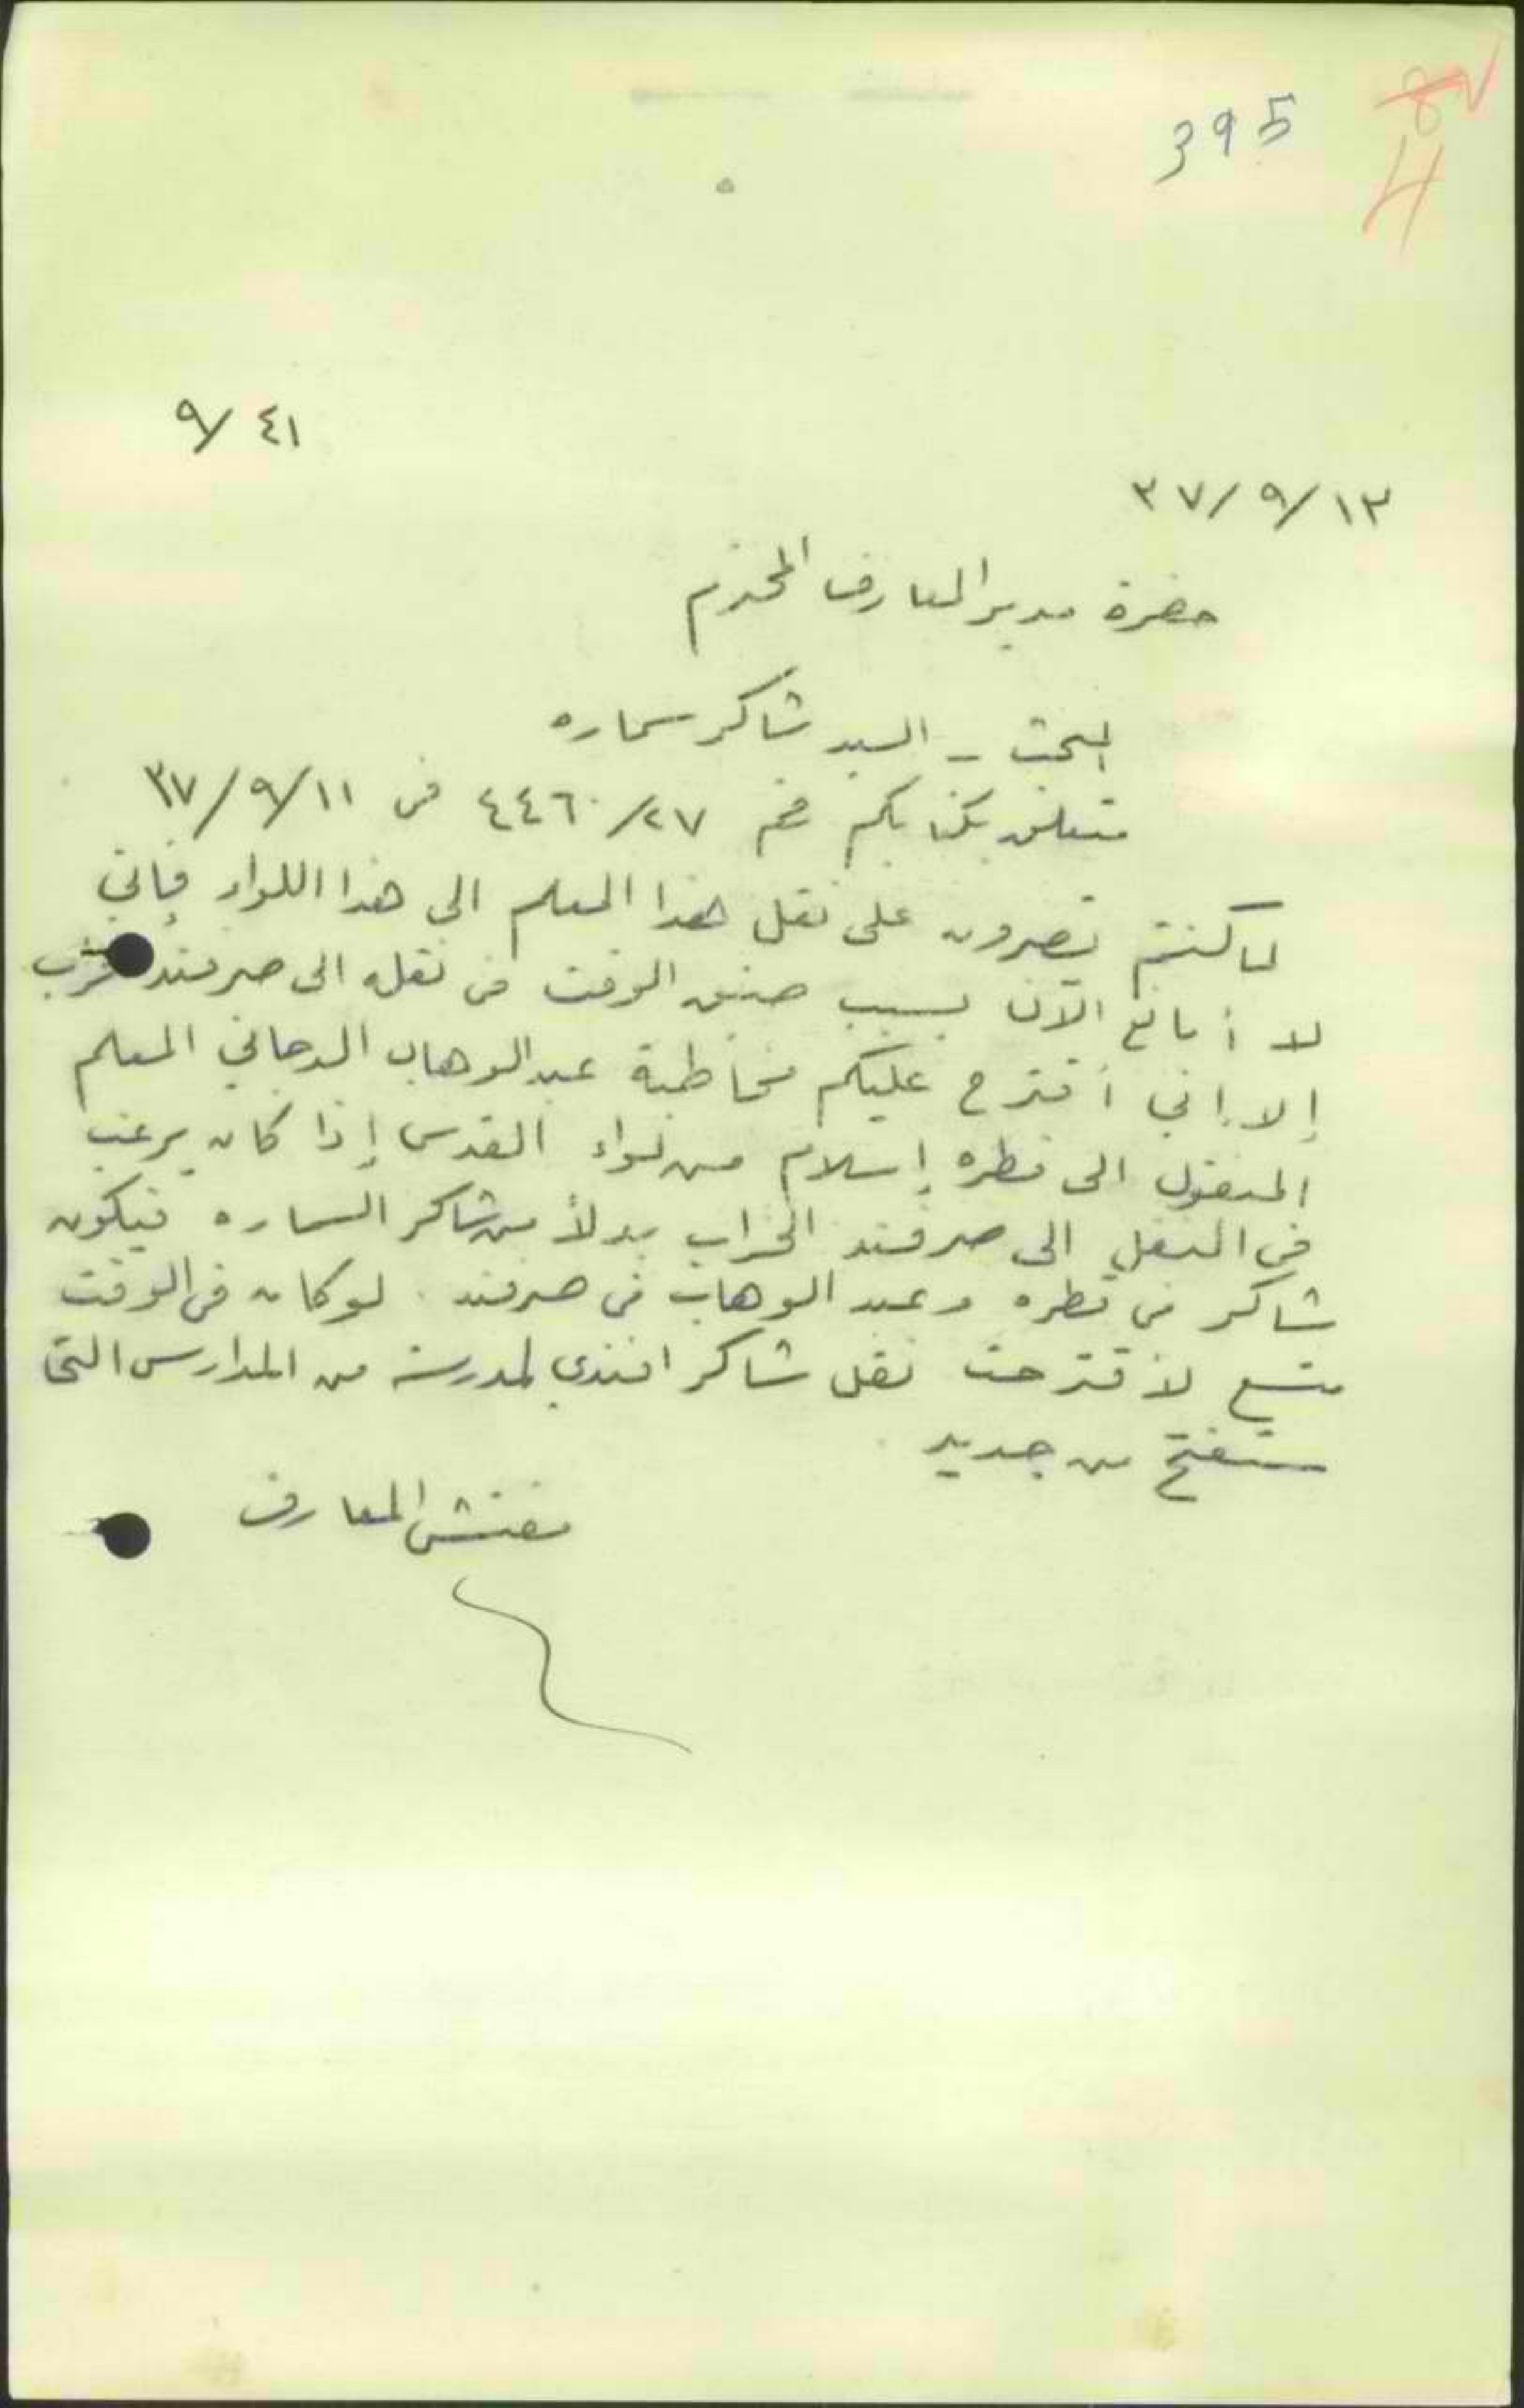 395
4
٤١/٩
٣٧/٩/١٣
حضرة مدير المعارف المحترم
البحث - السيد شاكر سماره
متعلق بكتابكم ٤٤٦٠/٢٧ في ٣٧/٩/١١
لما كنتم تصرون على نقل هذا المعلم الى هذا اللواء فإني
لا أمانع الآن بسبب ضيق الوقت في نقله الى صرفند
إلا إني أقترح عليكم مخاطبة عبد الوهاب الدجاني المعلم
المنقول الى قطره إسلام من لواء القدس إذا كان يرغب
في النقل الى صرفند الخراب بدلاً من شاكر السماره فيكون
شاكر في قطره وعبد الوهاب في صرفند . لو كان في الوقت
متسع لأقترحت نقل شاكر افندي لمدرسة من المدارس التي
ستفتح من جديد .
مفتش المعارف